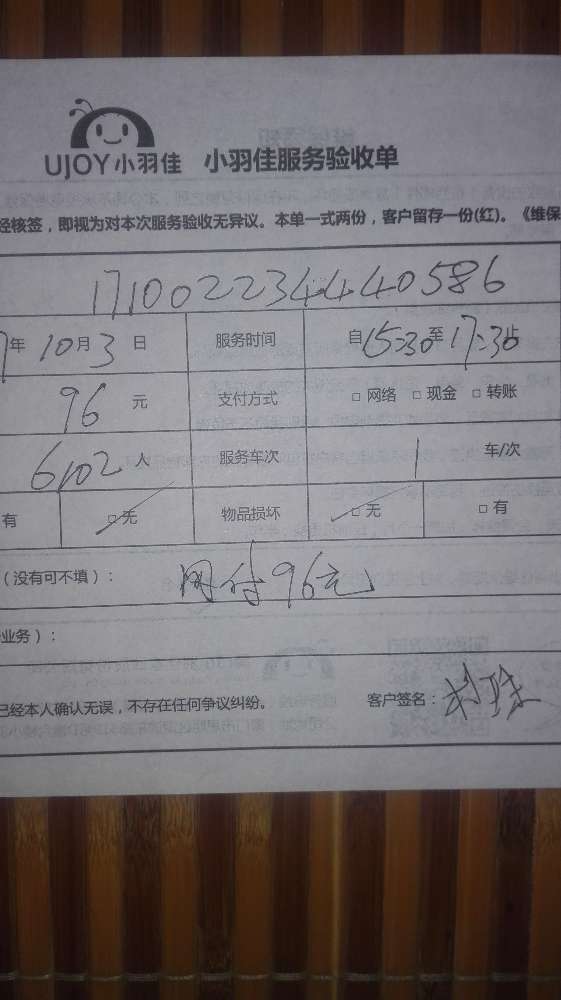 UJOY小羽佳 小羽佳服务验收单
经核签，即视为对本次服务验收无异议。本单一式两份，客户留存一份(红)。《维保
171002234440586
7年10月3日 服务时间 自15:30至17:30止
96元 支付方式 □ 网络 □ 现金 □ 转账
6102人 服务车次 1 车/次
有 □ 无 物品损坏 □ 无 □ 有
（没有可不填）： 网付96元
业务）：
已经本人确认无误，不存在任何争议纠纷。 客户签名：